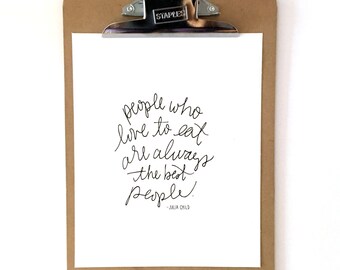 STAPLES
people who
love to eat
are always
the best
people.
-JULIA CHILD